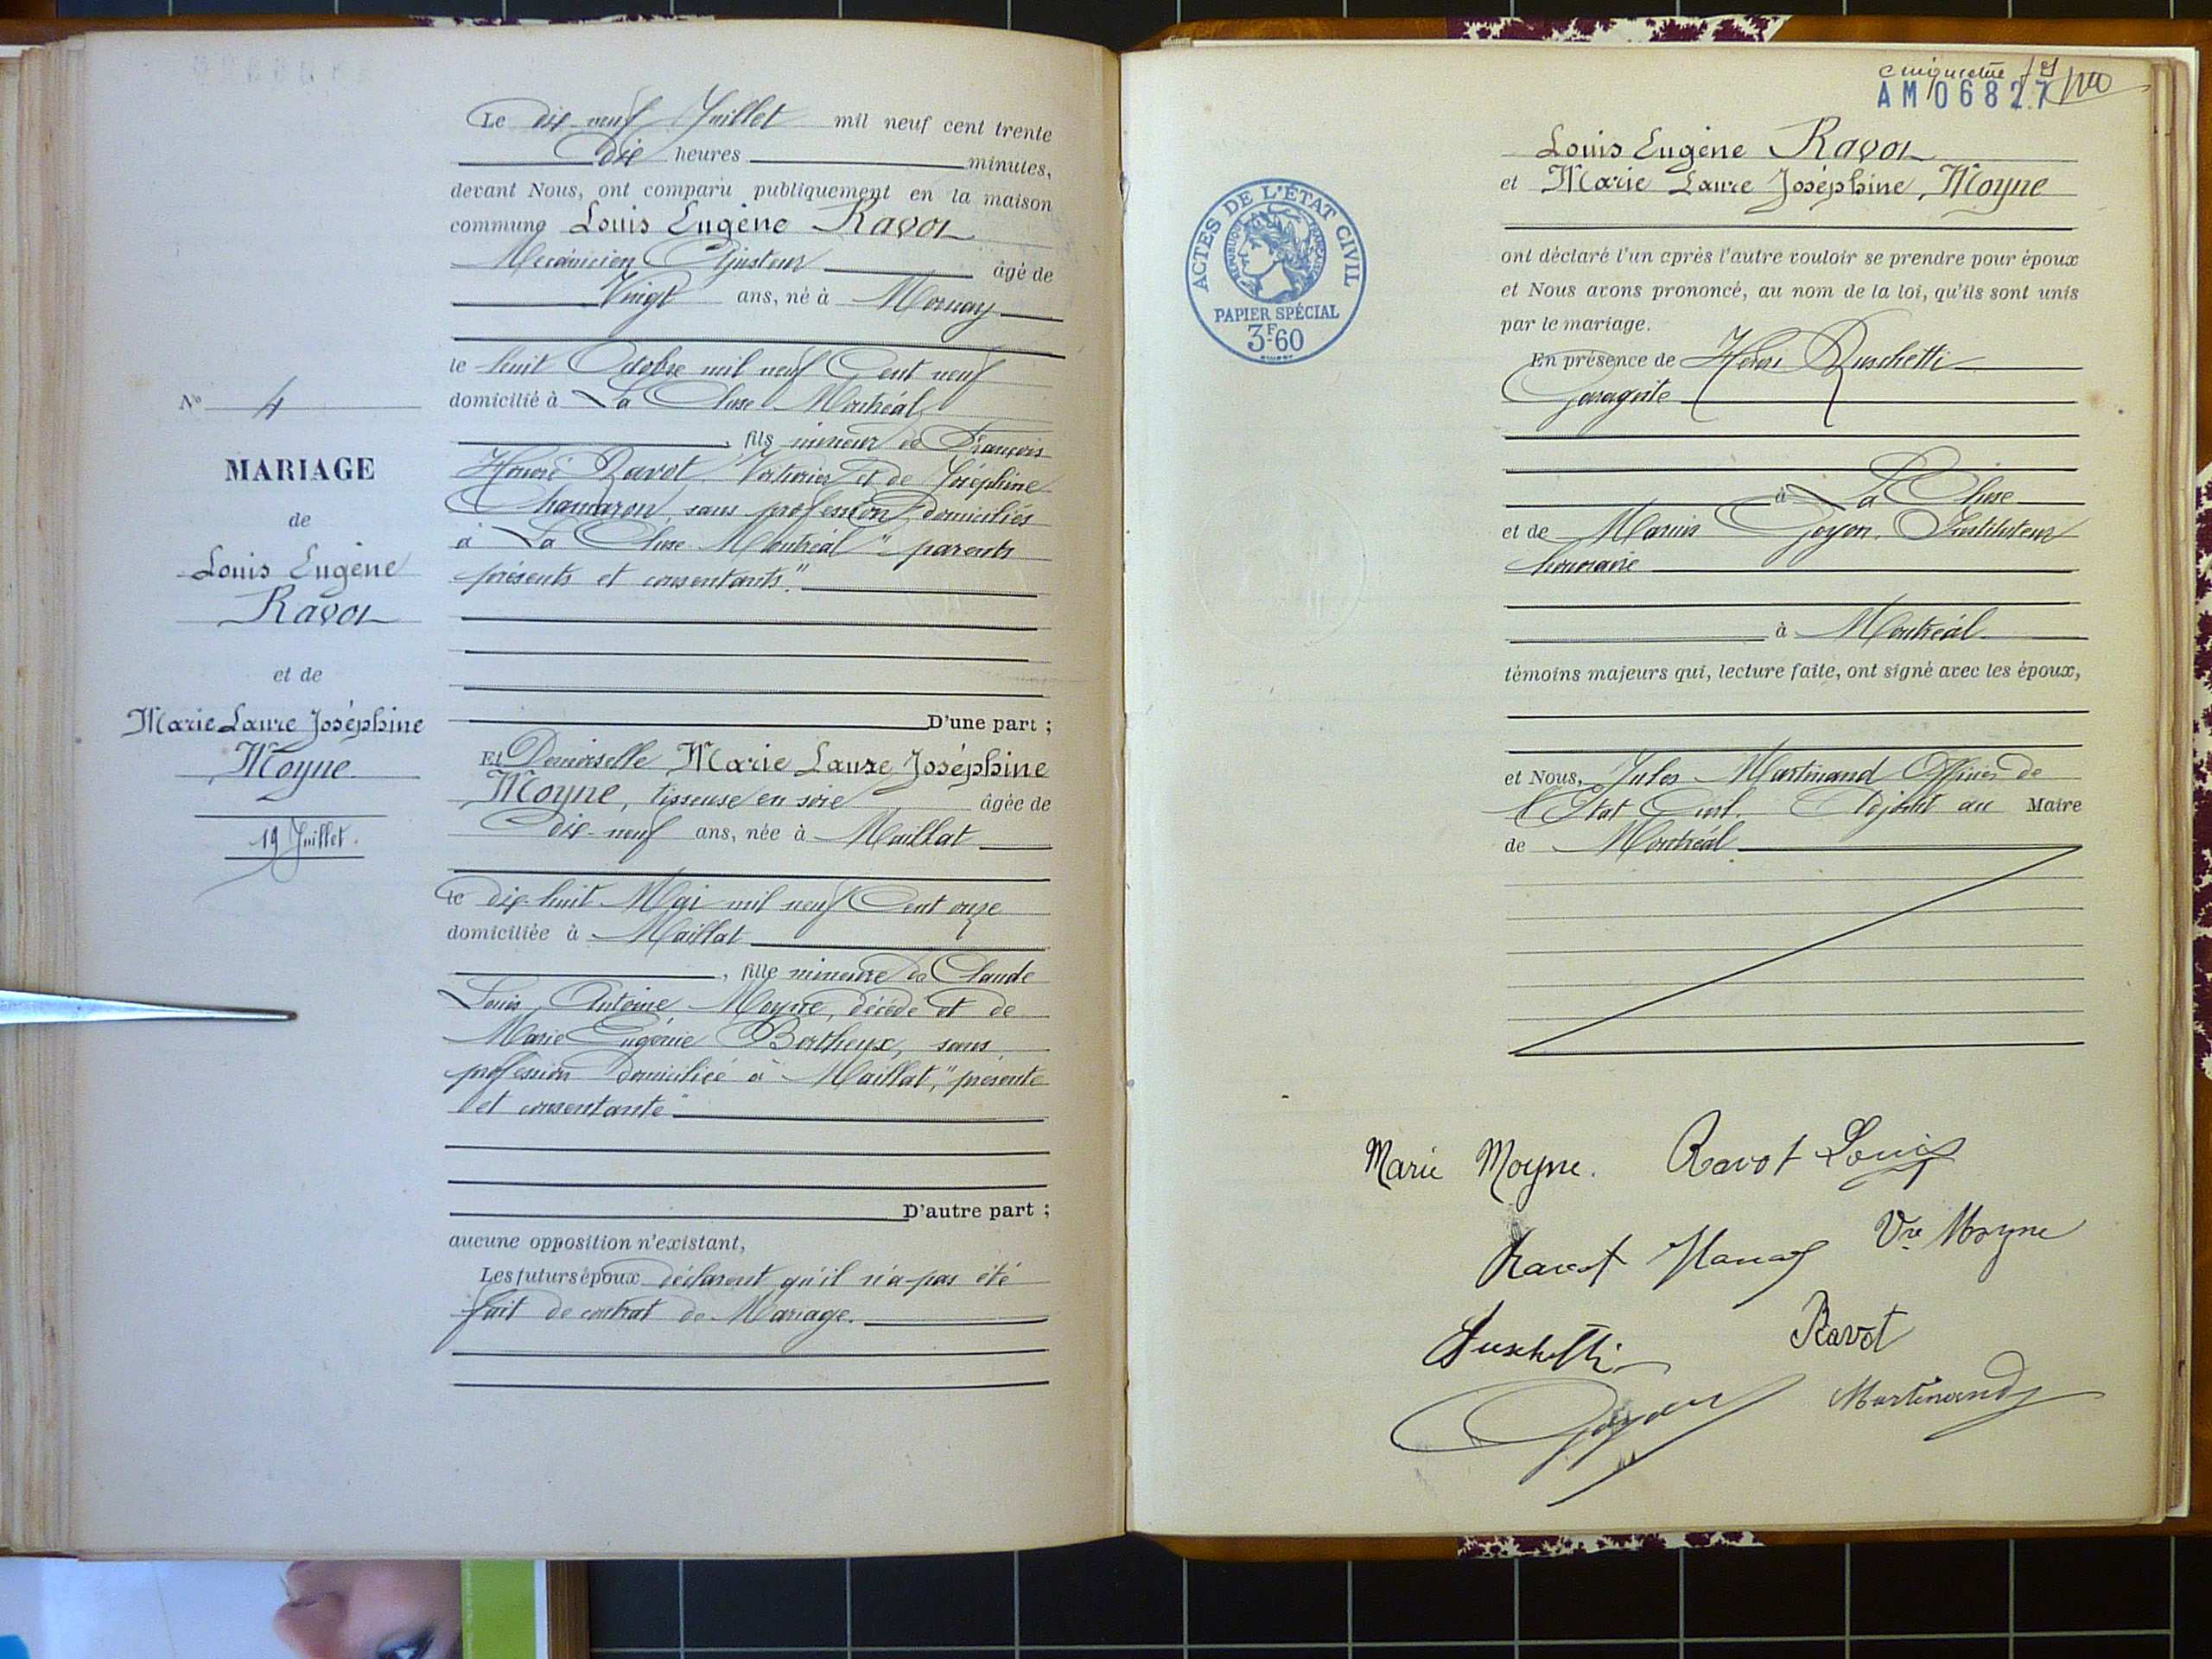 Le dix neuf Juillet mil neuf cent trente
Dix heures minutes,
devant Nous, ont comparu publiquement en la maison
commune Louis Eugène Ravot
Mécanicien Ajusteur âgé de
Vingt ans, né à Mornay
le huit Octobre mil neuf Cent neuf
domicilié à La Cluse Montréal
, fils mineur de François
Honoré Ravot, Voiturier et de Joséphine
Chamaron, sans profession, domiciliés
à La Cluse Montréal "parents
présents et consentants".
D'une part ;
Et Demoiselle Marie Laure Joséphine
Moyne, tisseuse en soie âgée de
dix-neuf ans, née à Maillat
le dix-huit Mai mil neuf Cent onze
domiciliée à Maillat
, fille mineure de Claude
Louis Antoine Moyne, décédé et de
Marie Eugénie Bertheux, sans
profession domiciliée à Maillat, "présente
et consentante"
D'autre part ;
aucune opposition n'existant,
Les futurs époux déclarent qu'il n'a pas été
fait de contrat de Mariage.
N° 4
MARIAGE
de
Louis Eugène
Ravot
et de
Marie Laure Joséphine
Moyne
19 Juillet.
AM06827
Louis Eugène Ravot
et Marie Laure Joséphine Moyne
ont déclaré l'un après l'autre vouloir se prendre pour époux
et Nous avons prononcé, au nom de la loi, qu'ils sont unis
par le mariage.
En présence de
Garagiste
à La Cluse
et de Marius Goyon, Instituteur
honoraire
à Montréal
témoins majeurs qui, lecture faite, ont signé avec les époux,
et Nous, Jules Martinand Officier de
l'Etat Civil. Adjoint au Maire
de Montréal
ACTES DE L'ETAT CIVIL
REPUBLIQUE FRANÇAISE
PAPIER SPÉCIAL
3F60
Marie Moyne. Ravot Louis
Ravot Vve Moyne
Ravot
Goyon Martinand